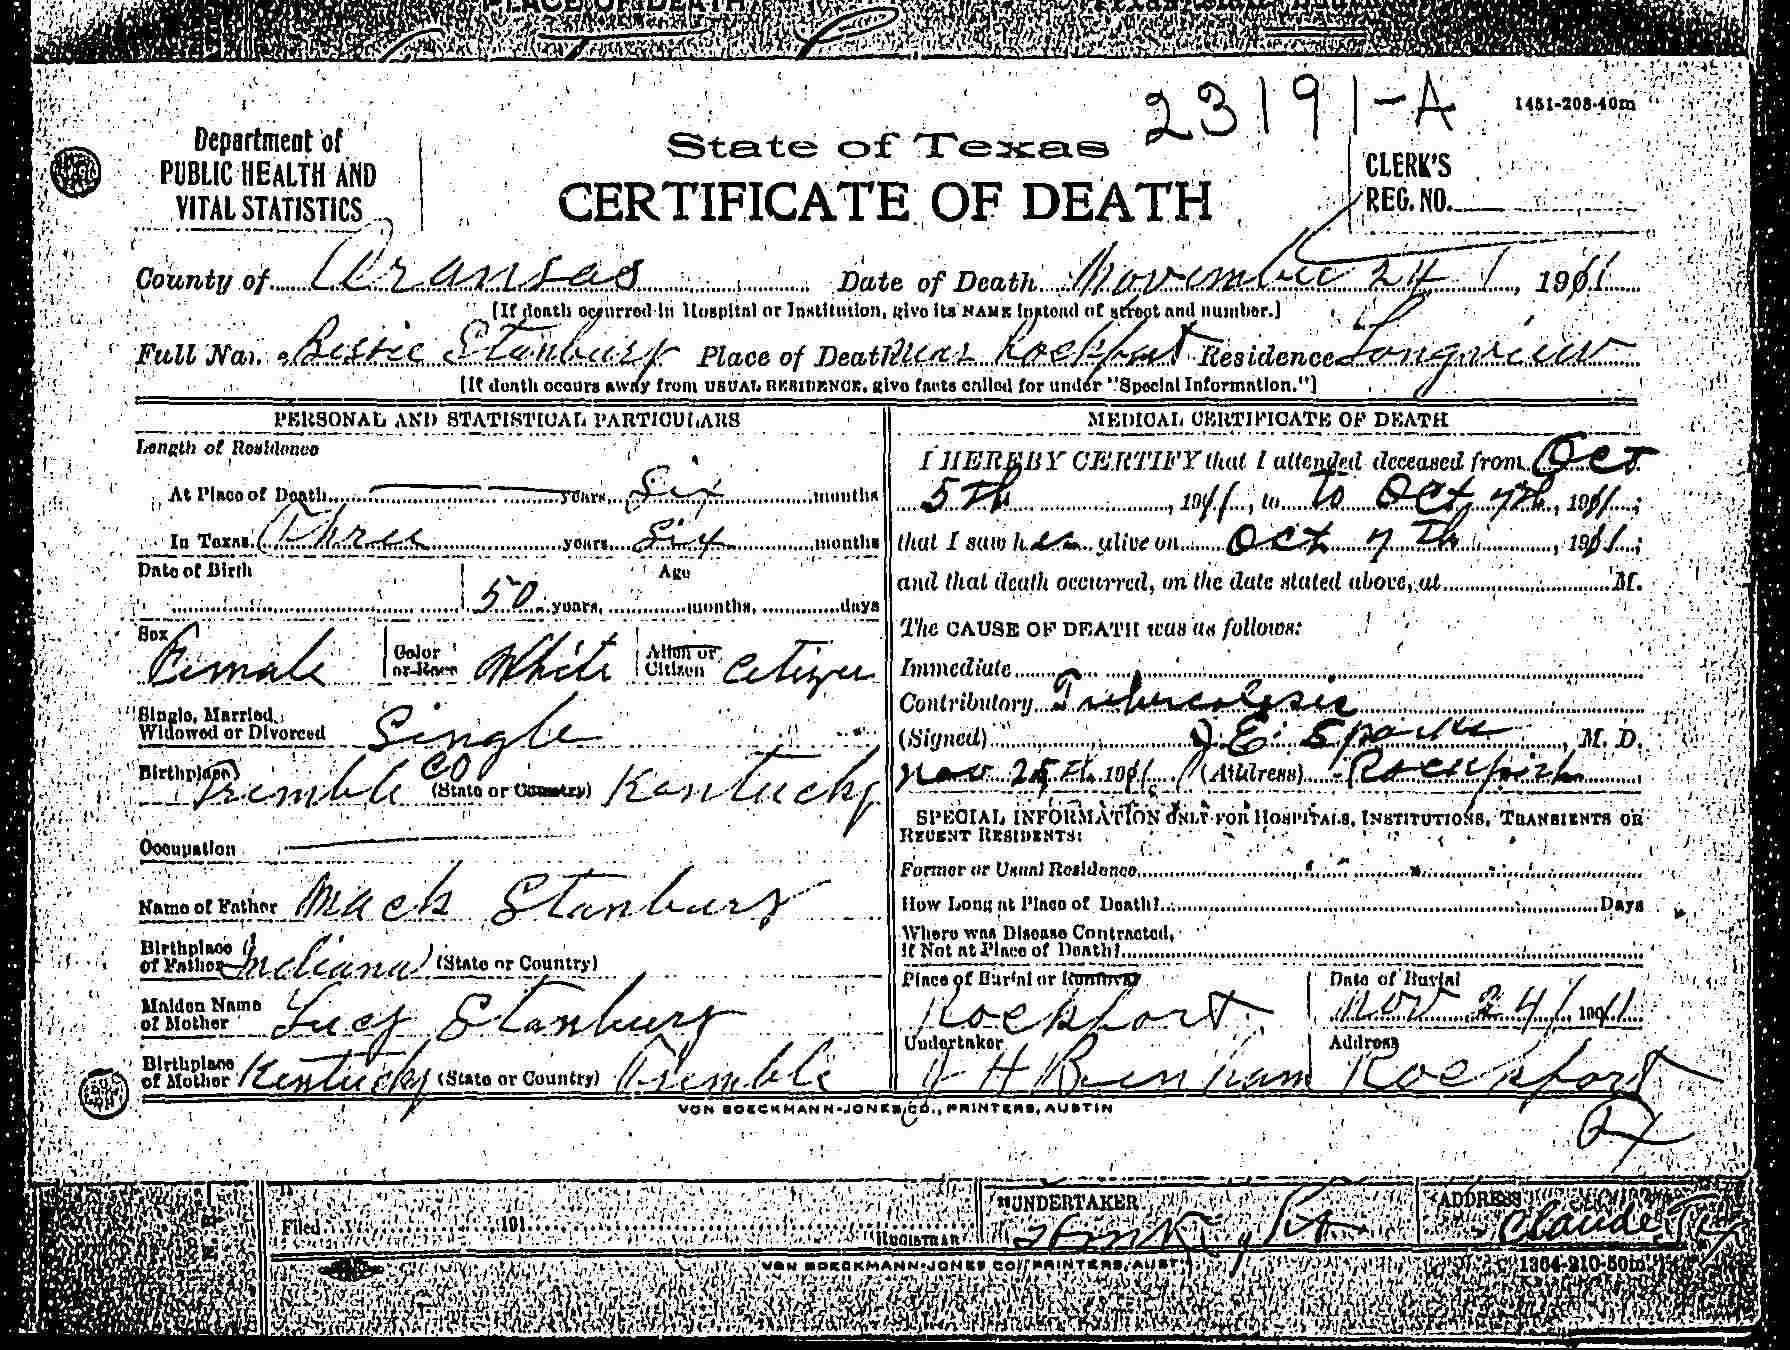 PLACE OF DEATH
23191-A
1451-208-40m
Department of
PUBLIC HEALTH AND
VITAL STATISTICS
State of Texas
CERTIFICATE OF DEATH
CLERK'S
REG. NO.
County of Aransas Date of Death November 24, 1911
[If death occurred in Hospital or Institution, give its NAME instead of street and number.]
Full Name Bessie Stanbury Place of Death near Rockport Residence Longview
[If death occurs away from USUAL RESIDENCE, give facts called for under "Special Information."]
PERSONAL AND STATISTICAL PARTICULARS
Length of Residence
At Place of Death years Six months
In Texas Three years Six months
Date of Birth Age
50 years, months, days
Sex Female Color or Race White Alien or Citizen Citizen
Single, Married,
Widowed or Divorced Single
Birthplace Trimble Co (State or Country) Kentucky
Occupation
Name of Father Mack Stanbury
Birthplace
of Father Indiana (State or Country)
Maiden Name
of Mother Lucy Stanbury
Birthplace
of Mother Kentucky (State or Country) Trimble
MEDICAL CERTIFICATE OF DEATH
I HEREBY CERTIFY that I attended deceased from Oct
5th, 1911, to to Oct 7th, 1911;
that I saw her alive on Oct 7th, 1911;
and that death occurred, on the date stated above, at M.
The CAUSE OF DEATH was as follows:
Immediate
Contributory Tuberculosis
(Signed) J E Sparks, M. D.
Nov 25th 1911 (Address) Rockport
SPECIAL INFORMATION ONLY FOR HOSPITALS, INSTITUTIONS, TRANSIENTS OR
RECENT RESIDENTS:
Former or Usual Residence
How Long at Place of Death? Days
Where was Disease Contracted,
If Not at Place of Death?
Place of Burial or Removal Date of Burial
Rockport Nov 24, 1911
Undertaker Address
J H Bingham Rockport
VON BOECKMANN-JONES CO., PRINTERS, AUSTIN
UNDERTAKER ADDRESS
Filed 191 REGISTRAR Claude Tex
VON BOECKMANN-JONES CO. PRINTERS, AUST
1364-210-50m